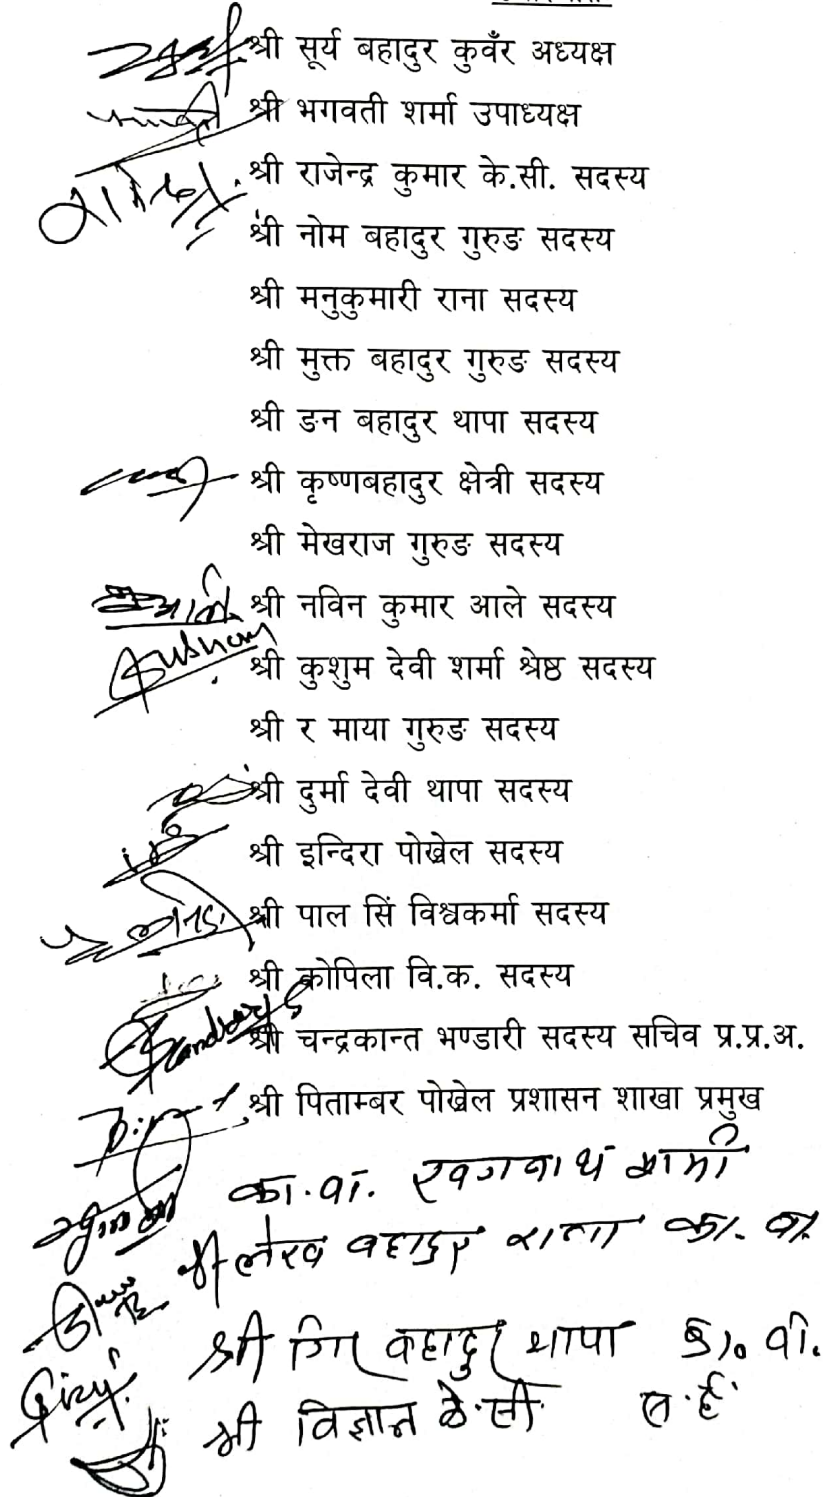 श्री सूर्य बहादुर कुवँर अध्यक्ष
श्री भगवती शर्मा उपाध्यक्ष
श्री राजेन्द्र कुमार के.सी. सदस्य
श्री नोम बहादुर गुरुङ सदस्य
श्री मनुकुमारी राना सदस्य
श्री मुक्त बहादुर गुरुङ सदस्य
श्री ङन बहादुर थापा सदस्य
श्री कृष्णबहादुर क्षेत्री सदस्य
श्री मेखराज गुरुङ सदस्य
श्री नविन कुमार आले सदस्य
Kushum श्री कुशुम देवी शर्मा श्रेष्ठ सदस्य
श्री र माया गुरुङ सदस्य
श्री दुर्मा देवी थापा सदस्य
श्री इन्दिरा पोख्रेल सदस्य
श्री पाल सिं विश्वकर्मा सदस्य
श्री कोपिला वि.क. सदस्य
श्री चन्द्रकान्त भण्डारी सदस्य सचिव प्र.प्र.अ.
श्री पिताम्बर पोख्रेल प्रशासन शाखा प्रमुख
का.वा.
श्री लेख बहादुर राना का.वा.
श्री गिर बहादुर थापा का. वा.
श्री विज्ञान के.सी.